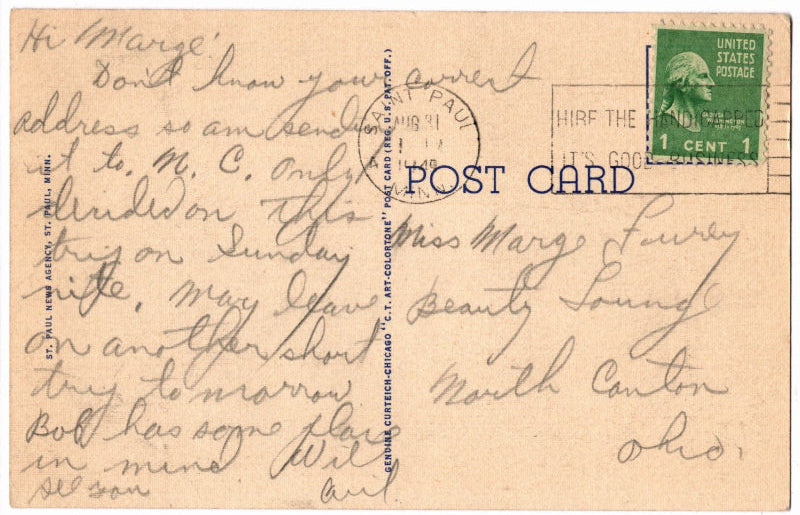 Hi Marge!
Don't know your correct
address so am send
it to N. C. Only
decided on this
trip on Sunday
nite, may leave
on another short
trip tomorrow
Bob has some place
in mind Will
see you
ST. PAUL NEWS AGENCY, ST. PAUL, MINN.
GENUINE CURTEICH-CHICAGO "C.T. ART-COLORTONE" POST CARD (REG. U.S. PAT. OFF.)
SAINT PAUL
AUG 31
1949
MINN.
HIRE THE HANDICAPPED
IT'S GOOD BUSINESS
UNITED
STATES
POSTAGE
1 CENT 1
POST CARD
Miss Marge
Beauty Lounge
North Canton
Ohio.